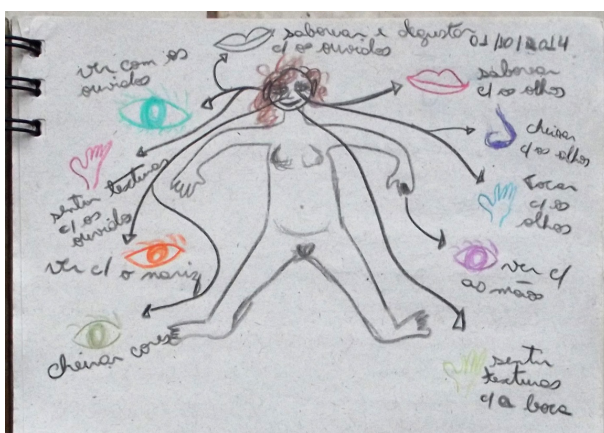 saborear e degustar
c/ os ouvidos
01/10/2014
ver com os
ouvidos
saborear
c/ os olhos
cheirar
c/ os olhos
sentir texturas
c/ os
ouvidos
tocar
c/ os
olhos
ver c/ o nariz
ver c/
as mãos
cheirar cores
sentir
texturas
c/ a boca